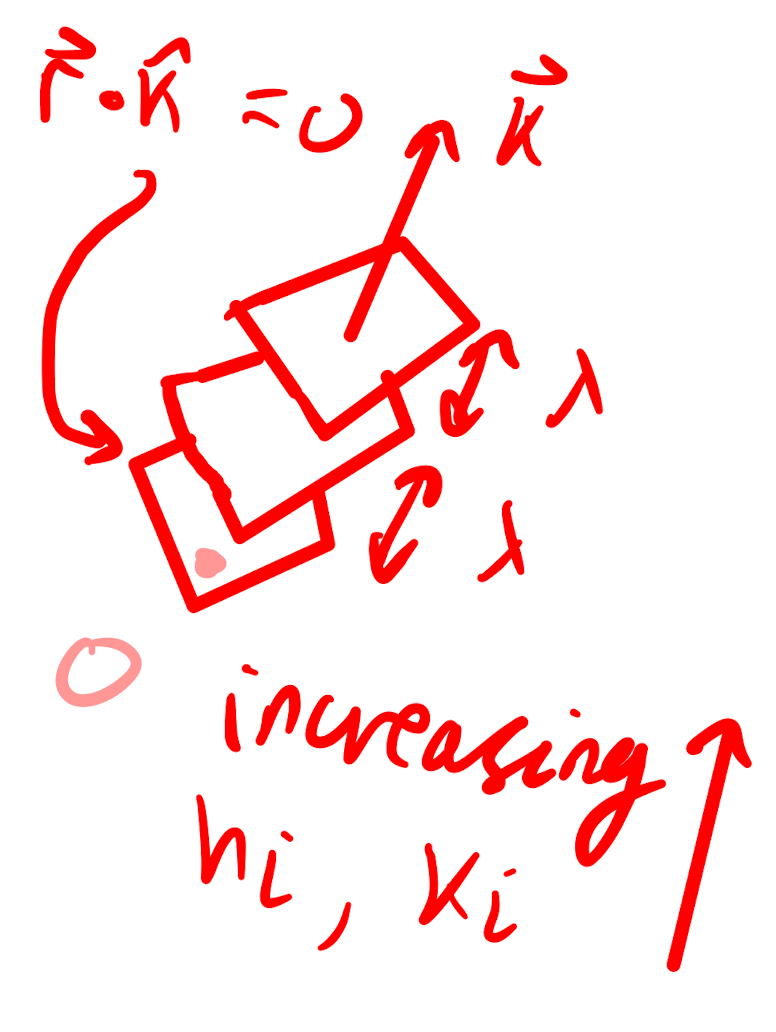 r⃗ · k̂ = 0
k⃗
λ
λ
O
increasing
n_i, k_i